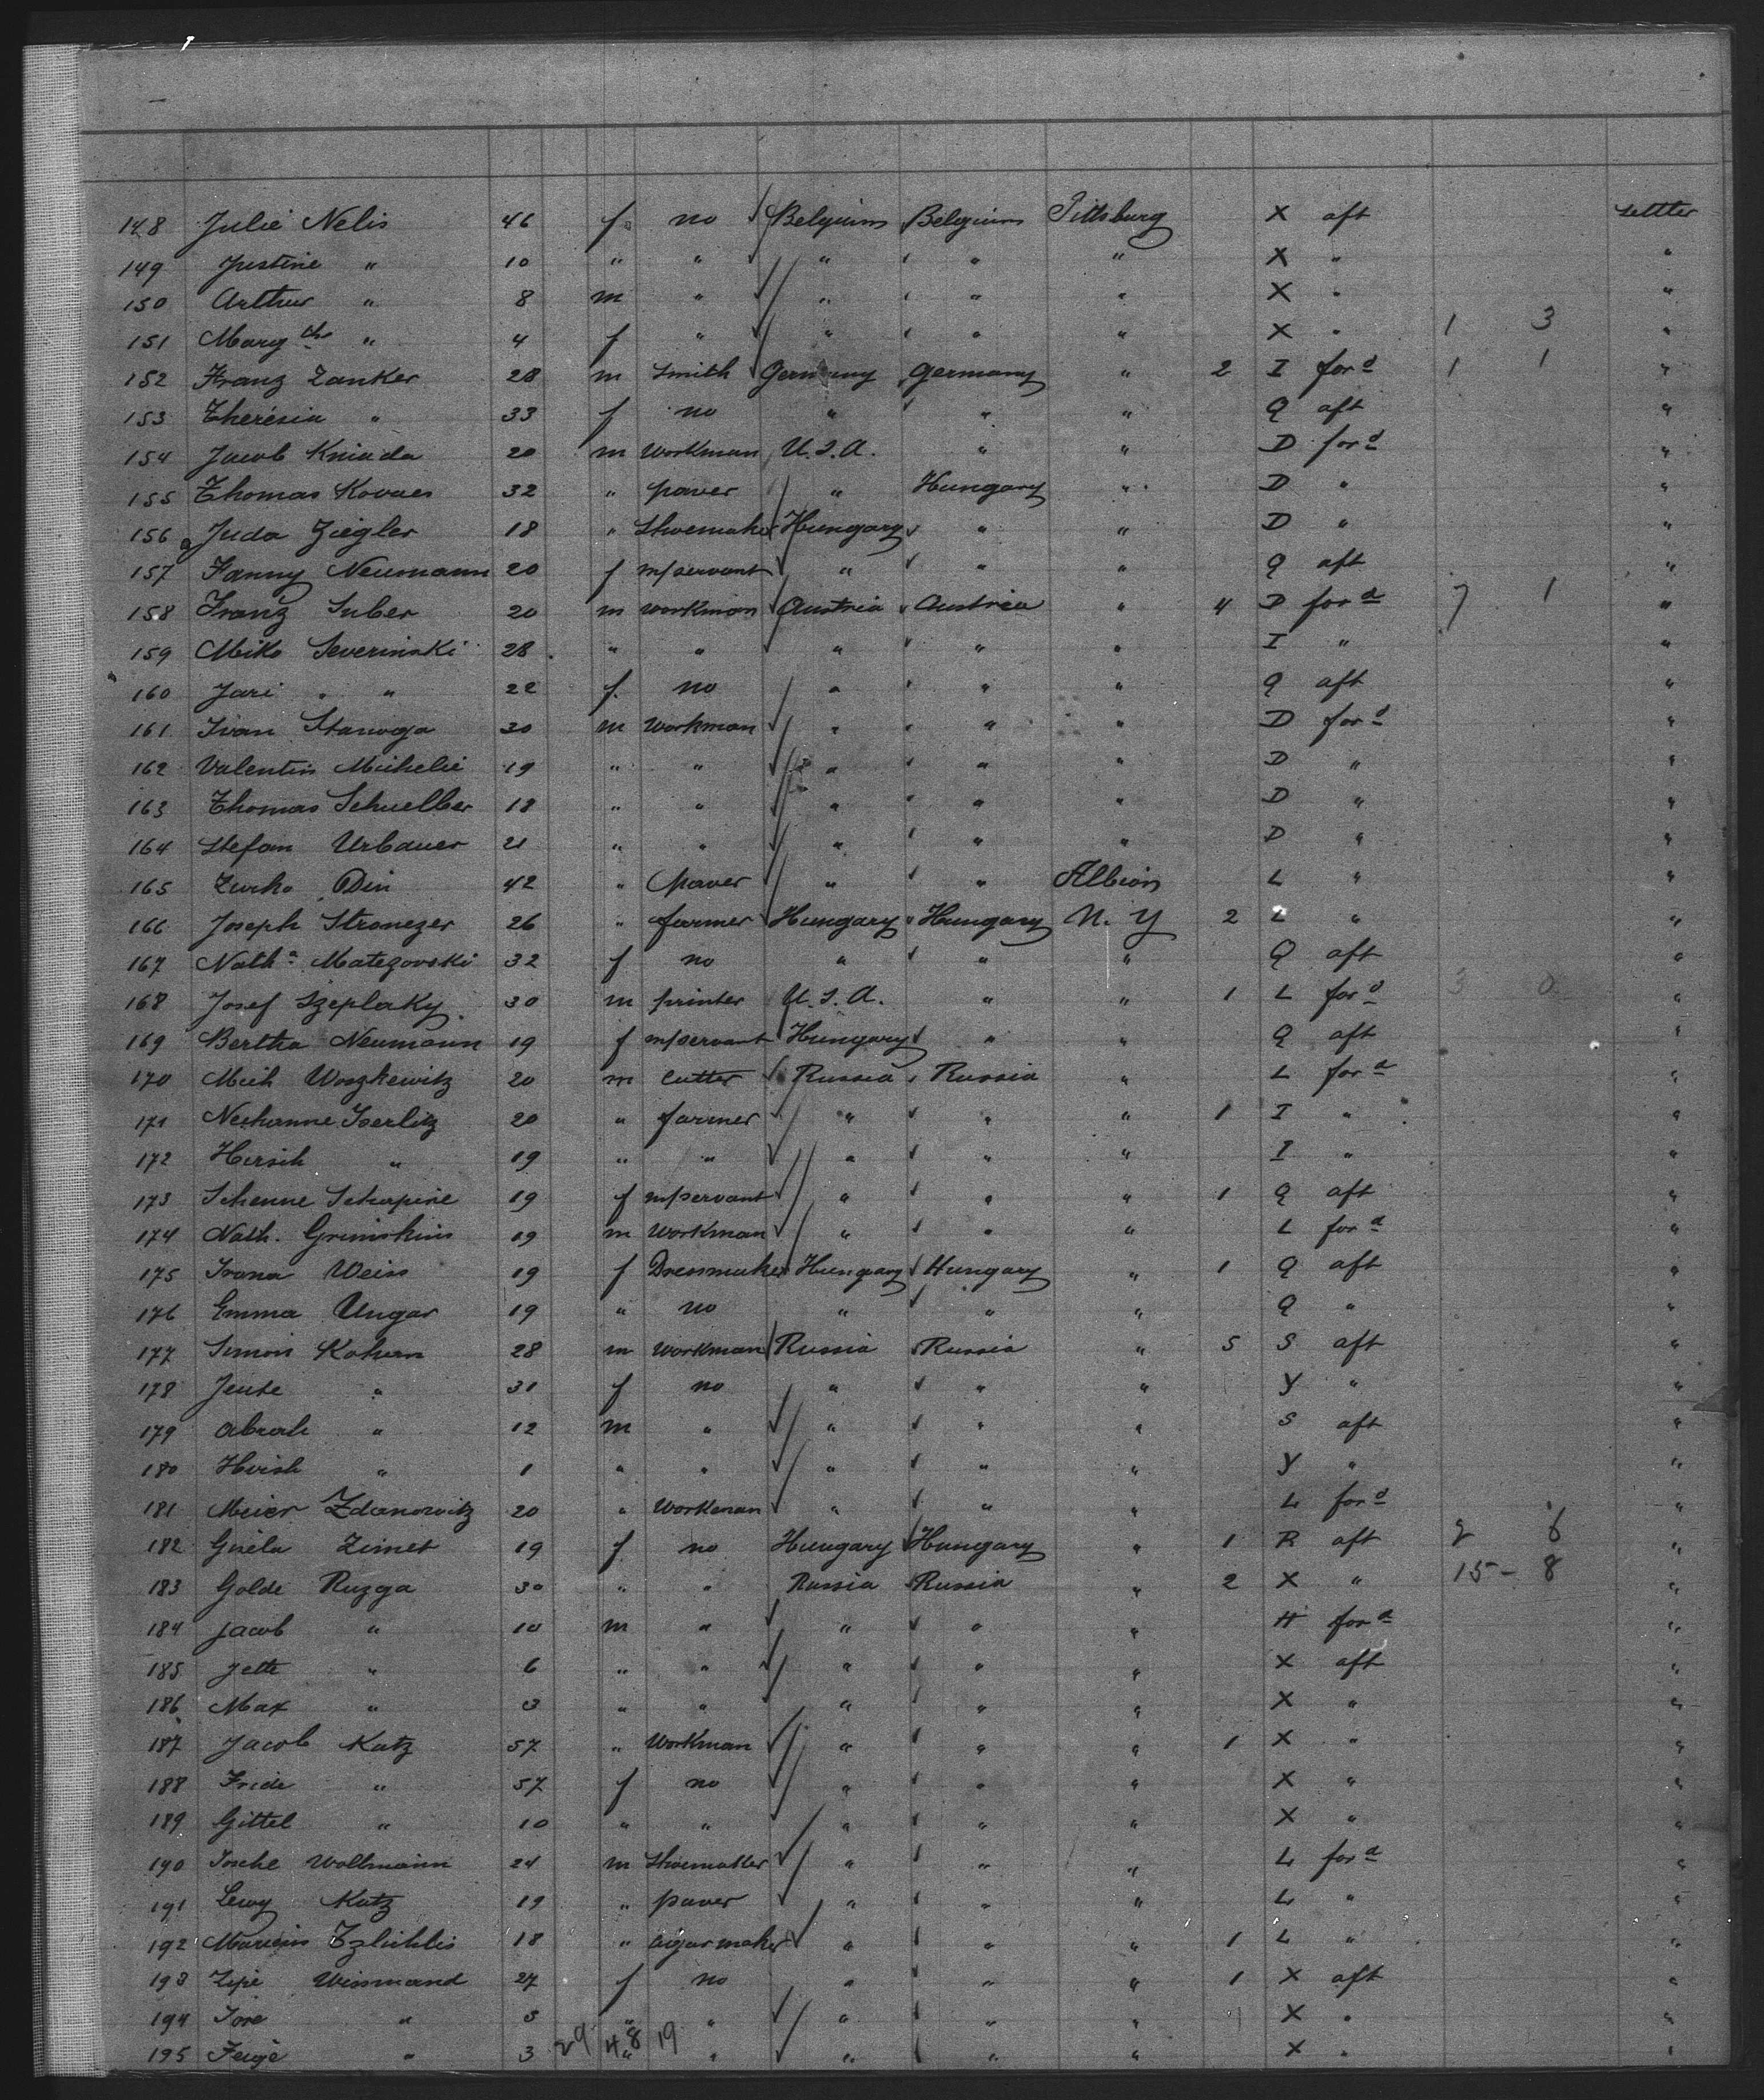 148 Julie Nelis 46 f no Belgium Belgium Pittsburg X aft settler
149 Justine " 10 " " " " " X " "
150 Arthur " 8 m " " " " X " "
151 Marg the " 4 f " " " " X " 1 3 "
152 Franz Zanker 28 m Smith Germany Germany " 2 I for d 1 1 "
153 Therésia " 33 f no " " " Q aft "
154 Jacob Kniada 20 m Workman U.S.A. " " D for d "
155 Thomas Kovacs 32 " paver " Hungary " D " "
156 Juda Ziegler 18 " Shoemaker Hungary " " D " "
157 Fanny Neumann 20 f m/servant " " " Q aft "
158 Franz Suber 20 m workman Austria Austria " 4 D for d 7 1 "
159 Miko Severinski 28 " " " " " I " "
160 Jari " 22 f. no " " " Q aft "
161 Ivan Stanoga 30 m workman " " " D for d "
162 Valentin Michelic 19 " " " " " D " "
163 Thomas Schuelber 18 " " " " " D " "
164 Stefan Urbauer 21 " " " " " D " "
165 Zurko Din 42 " paver " " Albion L " "
166 Joseph Stronezer 26 " farmer Hungary Hungary N. Y 2 L " "
167 Nath a Matezovski 32 f no " " " Q aft "
168 Josef Szeplaky 30 m printer U.S.A. " " 1 L for d 3 0 "
169 Bertha Neumann 19 f m/servant Hungary " " Q aft "
170 Meih Woszkewitz 20 m cutter Russia Russia " L for d "
171 Nechanne Iserlitz 20 " farmer " " " 1 I " "
172 Hirsch " 19 " " " " " I " "
173 Schenne Schapire 19 f m/servant " " " 1 Q aft "
174 Nath. Grimskins 19 m workman " " " L for d "
175 Irana Weiss 19 f Dressmaker Hungary Hungary " 1 Q aft "
176 Emma Ungar 19 " no " " " Q " "
177 Simon Kahan 28 m workman Russia Russia " 5 S aft "
178 Jente " 31 f no " " " Y " "
179 Abrah " 12 m " " " " S aft "
180 Hirsh " 1 " " " " " Y " "
181 Meier Zdanowitz 20 " workman " " " L for d "
182 Gisela Zimet 19 f no Hungary Hungary " 1 R aft 2 6 "
183 Golde Ruzga 30 " " Russia Russia " 2 X " 15 - 8 "
184 Jacob " 10 m " " " " H for d "
185 Jette " 6 " " " " " X aft "
186 Max " 3 " " " " " X " "
187 Jacob Katz 57 " Workman " " " 1 X " "
188 Fride " 57 f no " " " X " "
189 Gittel " 10 " " " " " X " "
190 Josche Wollmann 24 m Shoemaker " " " L for d "
191 Lewy Katz 19 " paver " " " L " "
192 18 " cigarmaker " " " 1 L " "
193 Zipe Wissmand 27 f no " " " 1 X aft "
194 Sore " 5 " " " " " X " "
195 Feige " 3 29 48 19 " " " " " X " "